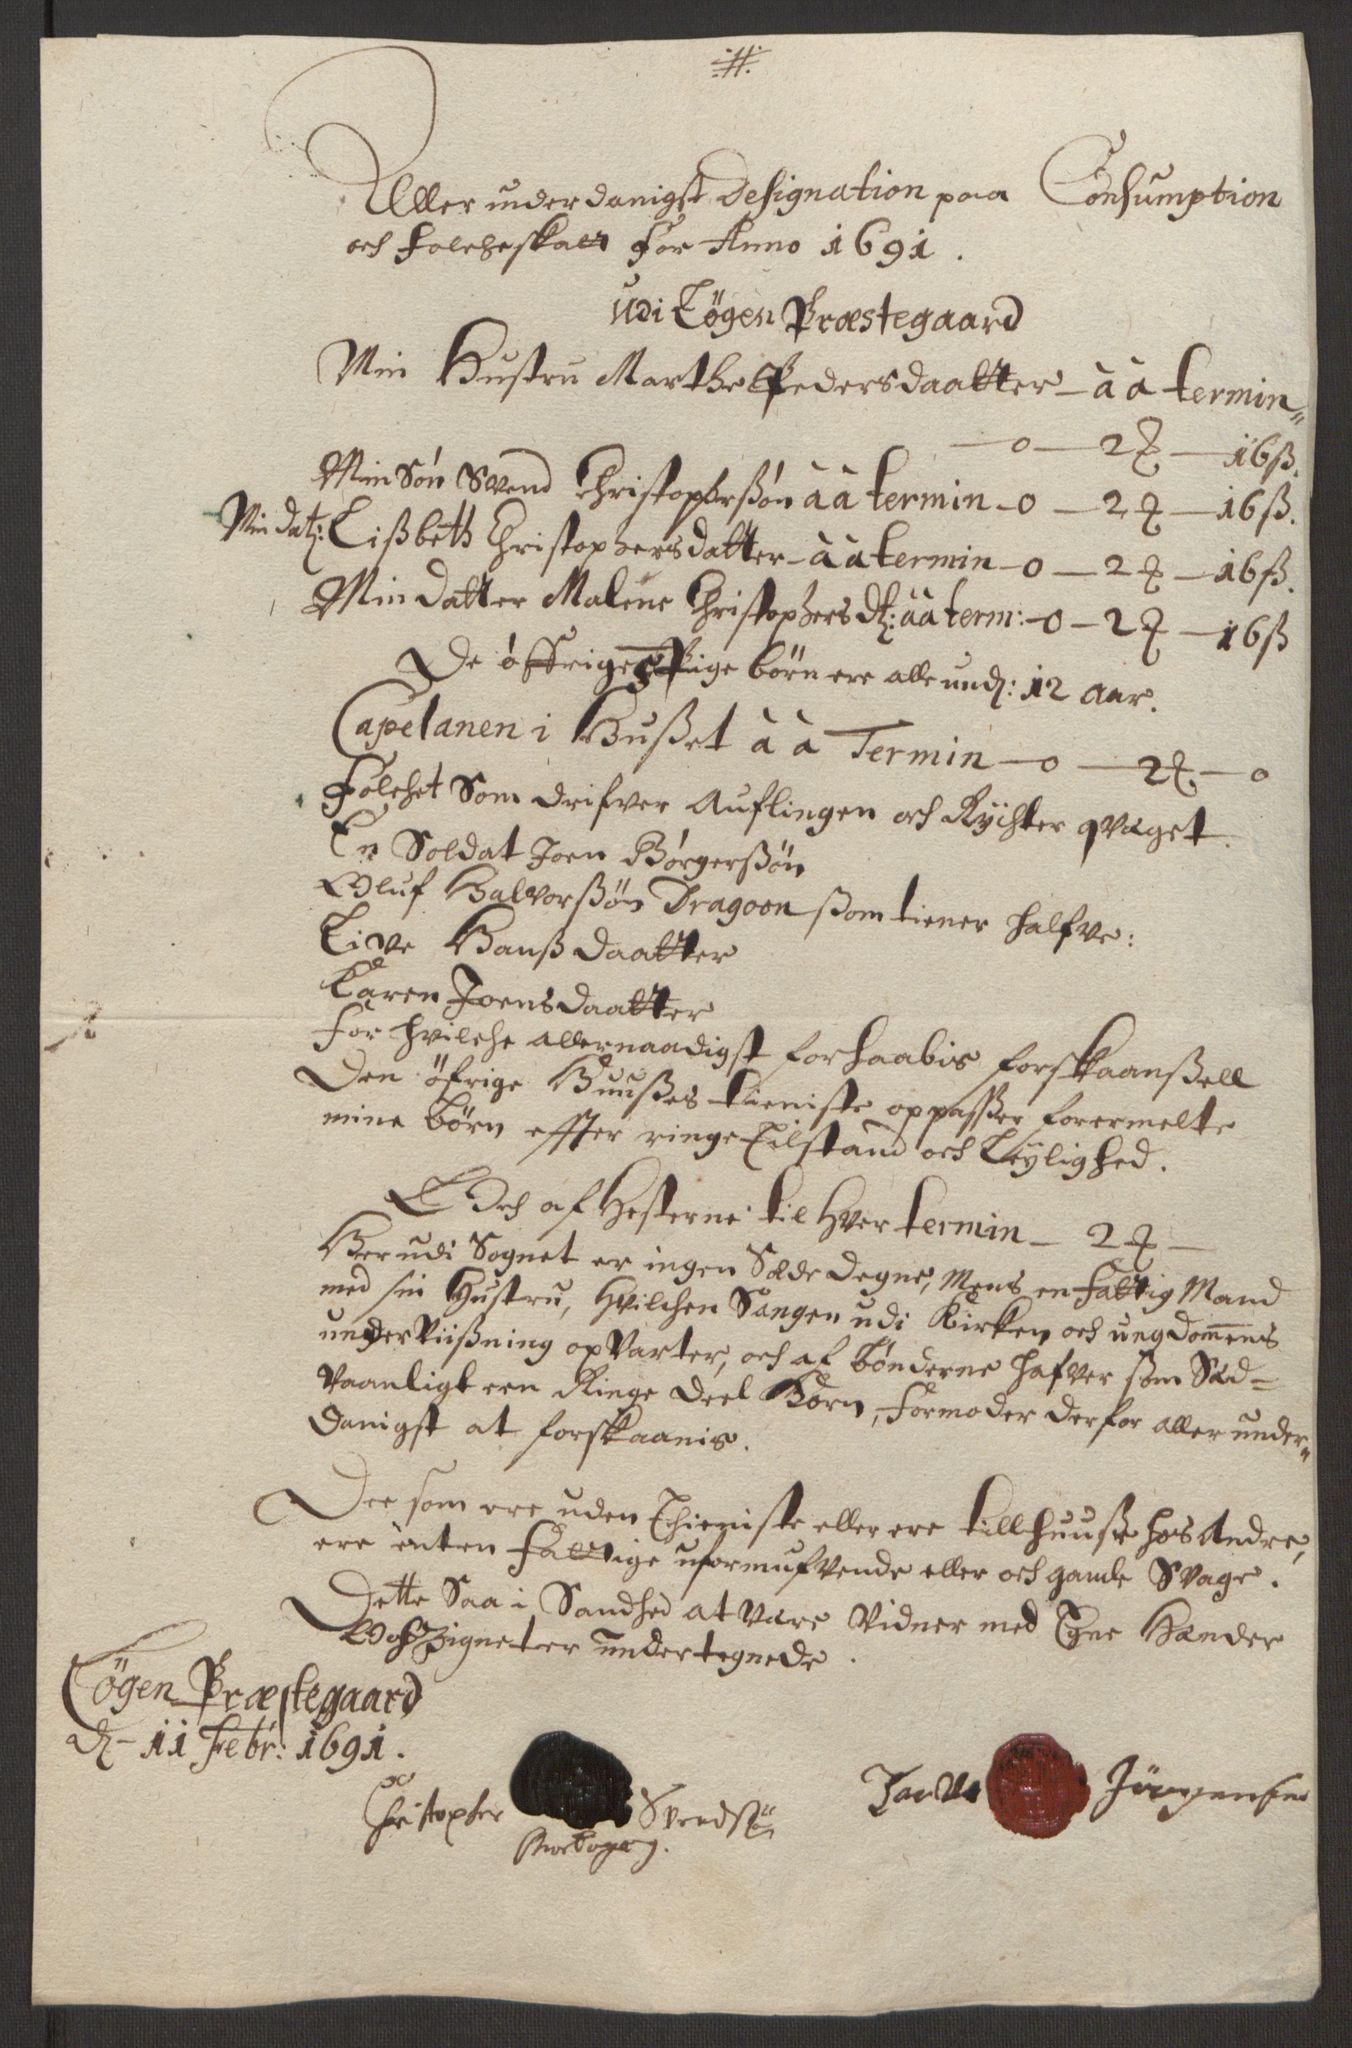 Aller underdanigst Designation paa Consumption
och Folcheskatt For Anno 1691.
Udi Løgen Præstegaard
Min Hustru Marthe Pedersdaatter — à à termin
— 0 — 2 — 16 ß.
Min Søn Svend Christophersøn à à termin — 0 — 2 — 16 ß.
Min dat: Lißbeth Christophersdatter — à à termin — 0 — 2 — 16 ß.
Min datter Malene Christophers dt: à à term: — 0 — 2 — 16 ß
De øffrige Pige børn ere alle und: 12 aar.
Capelanen i Hußet à à Termin — 0 — 2 — 0
Folchet Som drifver Auflingen och Rychter qvæget.
En Soldat Joen Børgerßøn
Oluf Halvorßøn Dragoen ßom tiener halfve:
Live Hanßdaatter
Karen Joensdaatter
For hvilche allernaadigst forhaabis forskaanßell
Den øfrige Huußes tieniste oppasser forermelte
mine børn effter ringe Tilstand och Leylighed.
och af Hesterne til Hver termin — 2 —
Her udi Sognet er ingen Sæde degne, Mens en Fattig Mand
med sin Hustru, Hvilchen Sangen udi Kirken och ungdommens
underViißning opVarter, och af bønderne hafver som Sæd=
Vaanligt een Ringe Deel Korn, Formoder derfor aller under=
danigst at forskaanis.
Dee som ere uden Thieniste eller ere till huuße hos Andre,
ere enten Fattige uformufvende eller och gamle Svage.
Dette Saa i Sandhed at være Vidner med Egne Hænder
Och Zigneter undertegnede.
Løgen Præstegaard
d. 11 Febr: 1691.
Christopher Svendsøn
Jörgensen